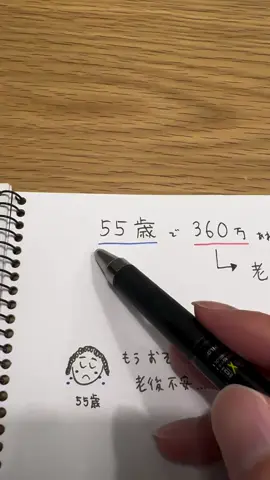 55歳で 360万
老
もう おそ
老後不安……
55歳